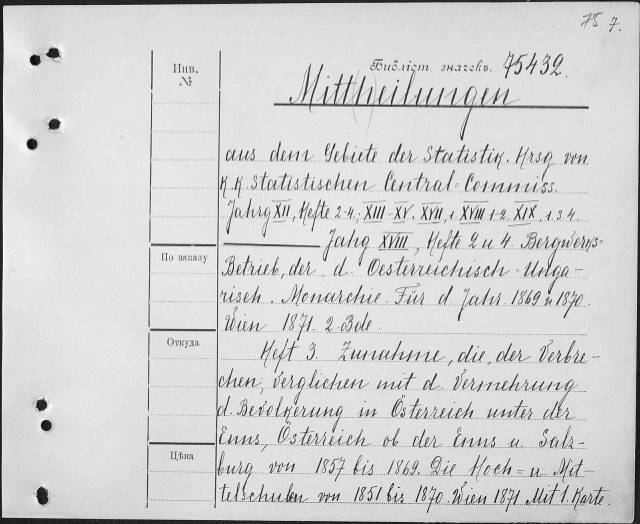 75 7.
Библіот. значекъ. 75432.
Инв.
№
Mitt(h)eilungen
aus dem Gebiete der Statistik. Hrsg von
K. K. Statistischen Central-Commiss.
Jahrg XII, Hefte 2-4; XIII-XV. XVII, 1. XVIII 1-2. XIX, 1.3.4.
Jahg XVIII, Hefte 2 u 4. Bergwerks-
По заказу
Betrieb, der d. Oesterreichisch-Unga-
risch. Monarchie. Für d. Jahr. 1869 u 1870.
Wien 1871. 2 Bde.
Откуда
Heft 3. Zunahme, die, der Verbre-
chen, verglichen mit d. Vermehrung
d. Bevölkerung in Österreich unter der
Enns, Österreich ob der Enns u. Salz-
Цѣна
burg von 1857 bis 1869. Die Hoch- u. Mit-
telschulen von 1851 bis 1870. Wien 1871. Mit 1. Karte.